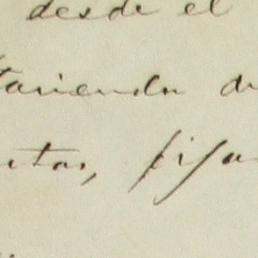 desde el
tariendo de
ntas, fija